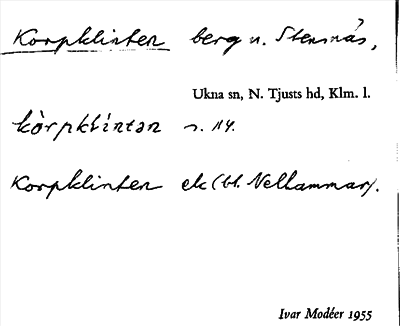 Korpklinten berg n. Stensnäs,
Ukna sn, N. Tjusts hd, Klm. l.
kòrpklintən n. 114.
Korpklinten ek (bl. Nelhammar).
Ivar Modéer 1955